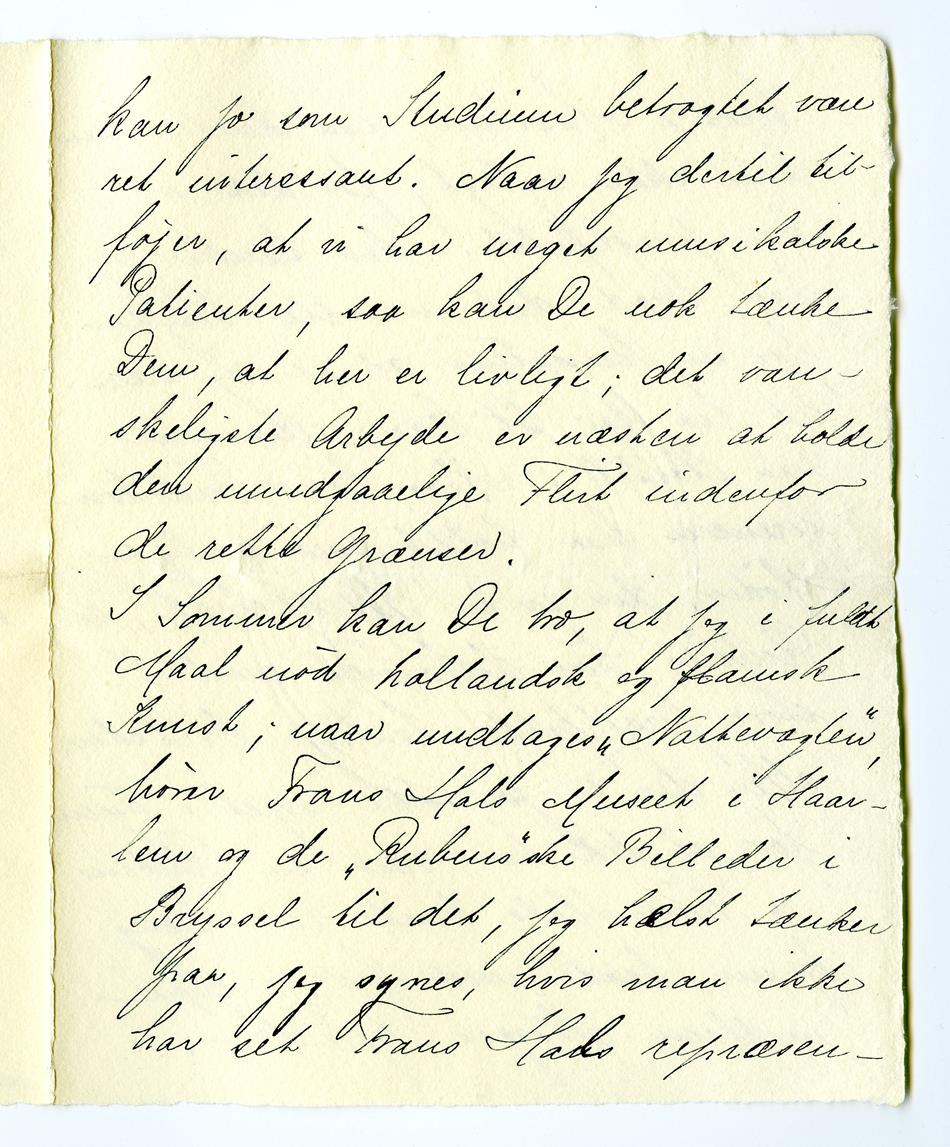 kan jo som Studium betragtet være
ret interessant. Naar jeg dertil til-
føjer, at vi har meget musikalske
Patienter, saa kan De nok tænke
Dem, at her er livligt; det van-
skeligste Arbejde er næsten at holde
den uundgaaelige Flirt indenfor
de rette Grænser.
I Sommer kan De tro, at jeg i fuldt
Maal nød hollandsk og flamsk
Kunst; naar undtages „Nattevagten“,
hører Frans Hals Museet i Haar-
lem og de „Rubens“ske Billeder i
Bryssel til det, jeg hælst tænker
paa, jeg synes, hvis man ikke
har set Frans Hals repræsen-